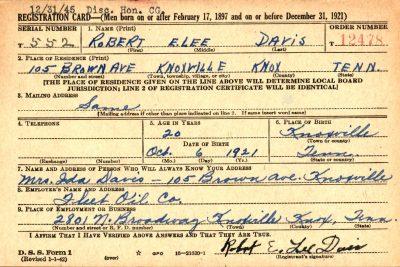 12/31/45 Disc. Hon. CG.
REGISTRATION CARD—(Men born on or after February 17, 1897 and on or before December 31, 1921)
SERIAL NUMBER 1. NAME (Print) ORDER NUMBER
T 552 ROBERT E.LEE DAVIS T 12478
(First) (Middle) (Last)
2. PLACE OF RESIDENCE (Print)
105 BROWN AVE KNOXVILLE KNOX TENN.
(Number and street) (Town, township, village, or city) (County) (State)
[THE PLACE OF RESIDENCE GIVEN ON THE LINE ABOVE WILL DETERMINE LOCAL BOARD
JURISDICTION; LINE 2 OF REGISTRATION CERTIFICATE WILL BE IDENTICAL]
3. MAILING ADDRESS
Same
[Mailing address if other than place indicated on line 2. If same insert word same]
4. TELEPHONE 5. AGE IN YEARS 6. PLACE OF BIRTH
20 Knoxville
DATE OF BIRTH (Town or county)
Oct. 6 1921 Tenn.
(Exchange) (Number) (Mo.) (Day) (Yr.) (State or country)
7. NAME AND ADDRESS OF PERSON WHO WILL ALWAYS KNOW YOUR ADDRESS
Mrs. Ida Davis — 105 Brown Ave. Knoxville
8. EMPLOYER'S NAME AND ADDRESS
Fleet Oil Co.
9. PLACE OF EMPLOYMENT OR BUSINESS
2801 N. Broadway Knoxville Knox, Tenn.
(Number and street or R. F. D. number) (Town) (County) (State)
I AFFIRM THAT I HAVE VERIFIED ABOVE ANSWERS AND THAT THEY ARE TRUE.
D. S. S. Form 1 GPO 16-21630-1 Robt E. Lee Davis
(Revised 1-3-42) (over) (Registrant's signature)